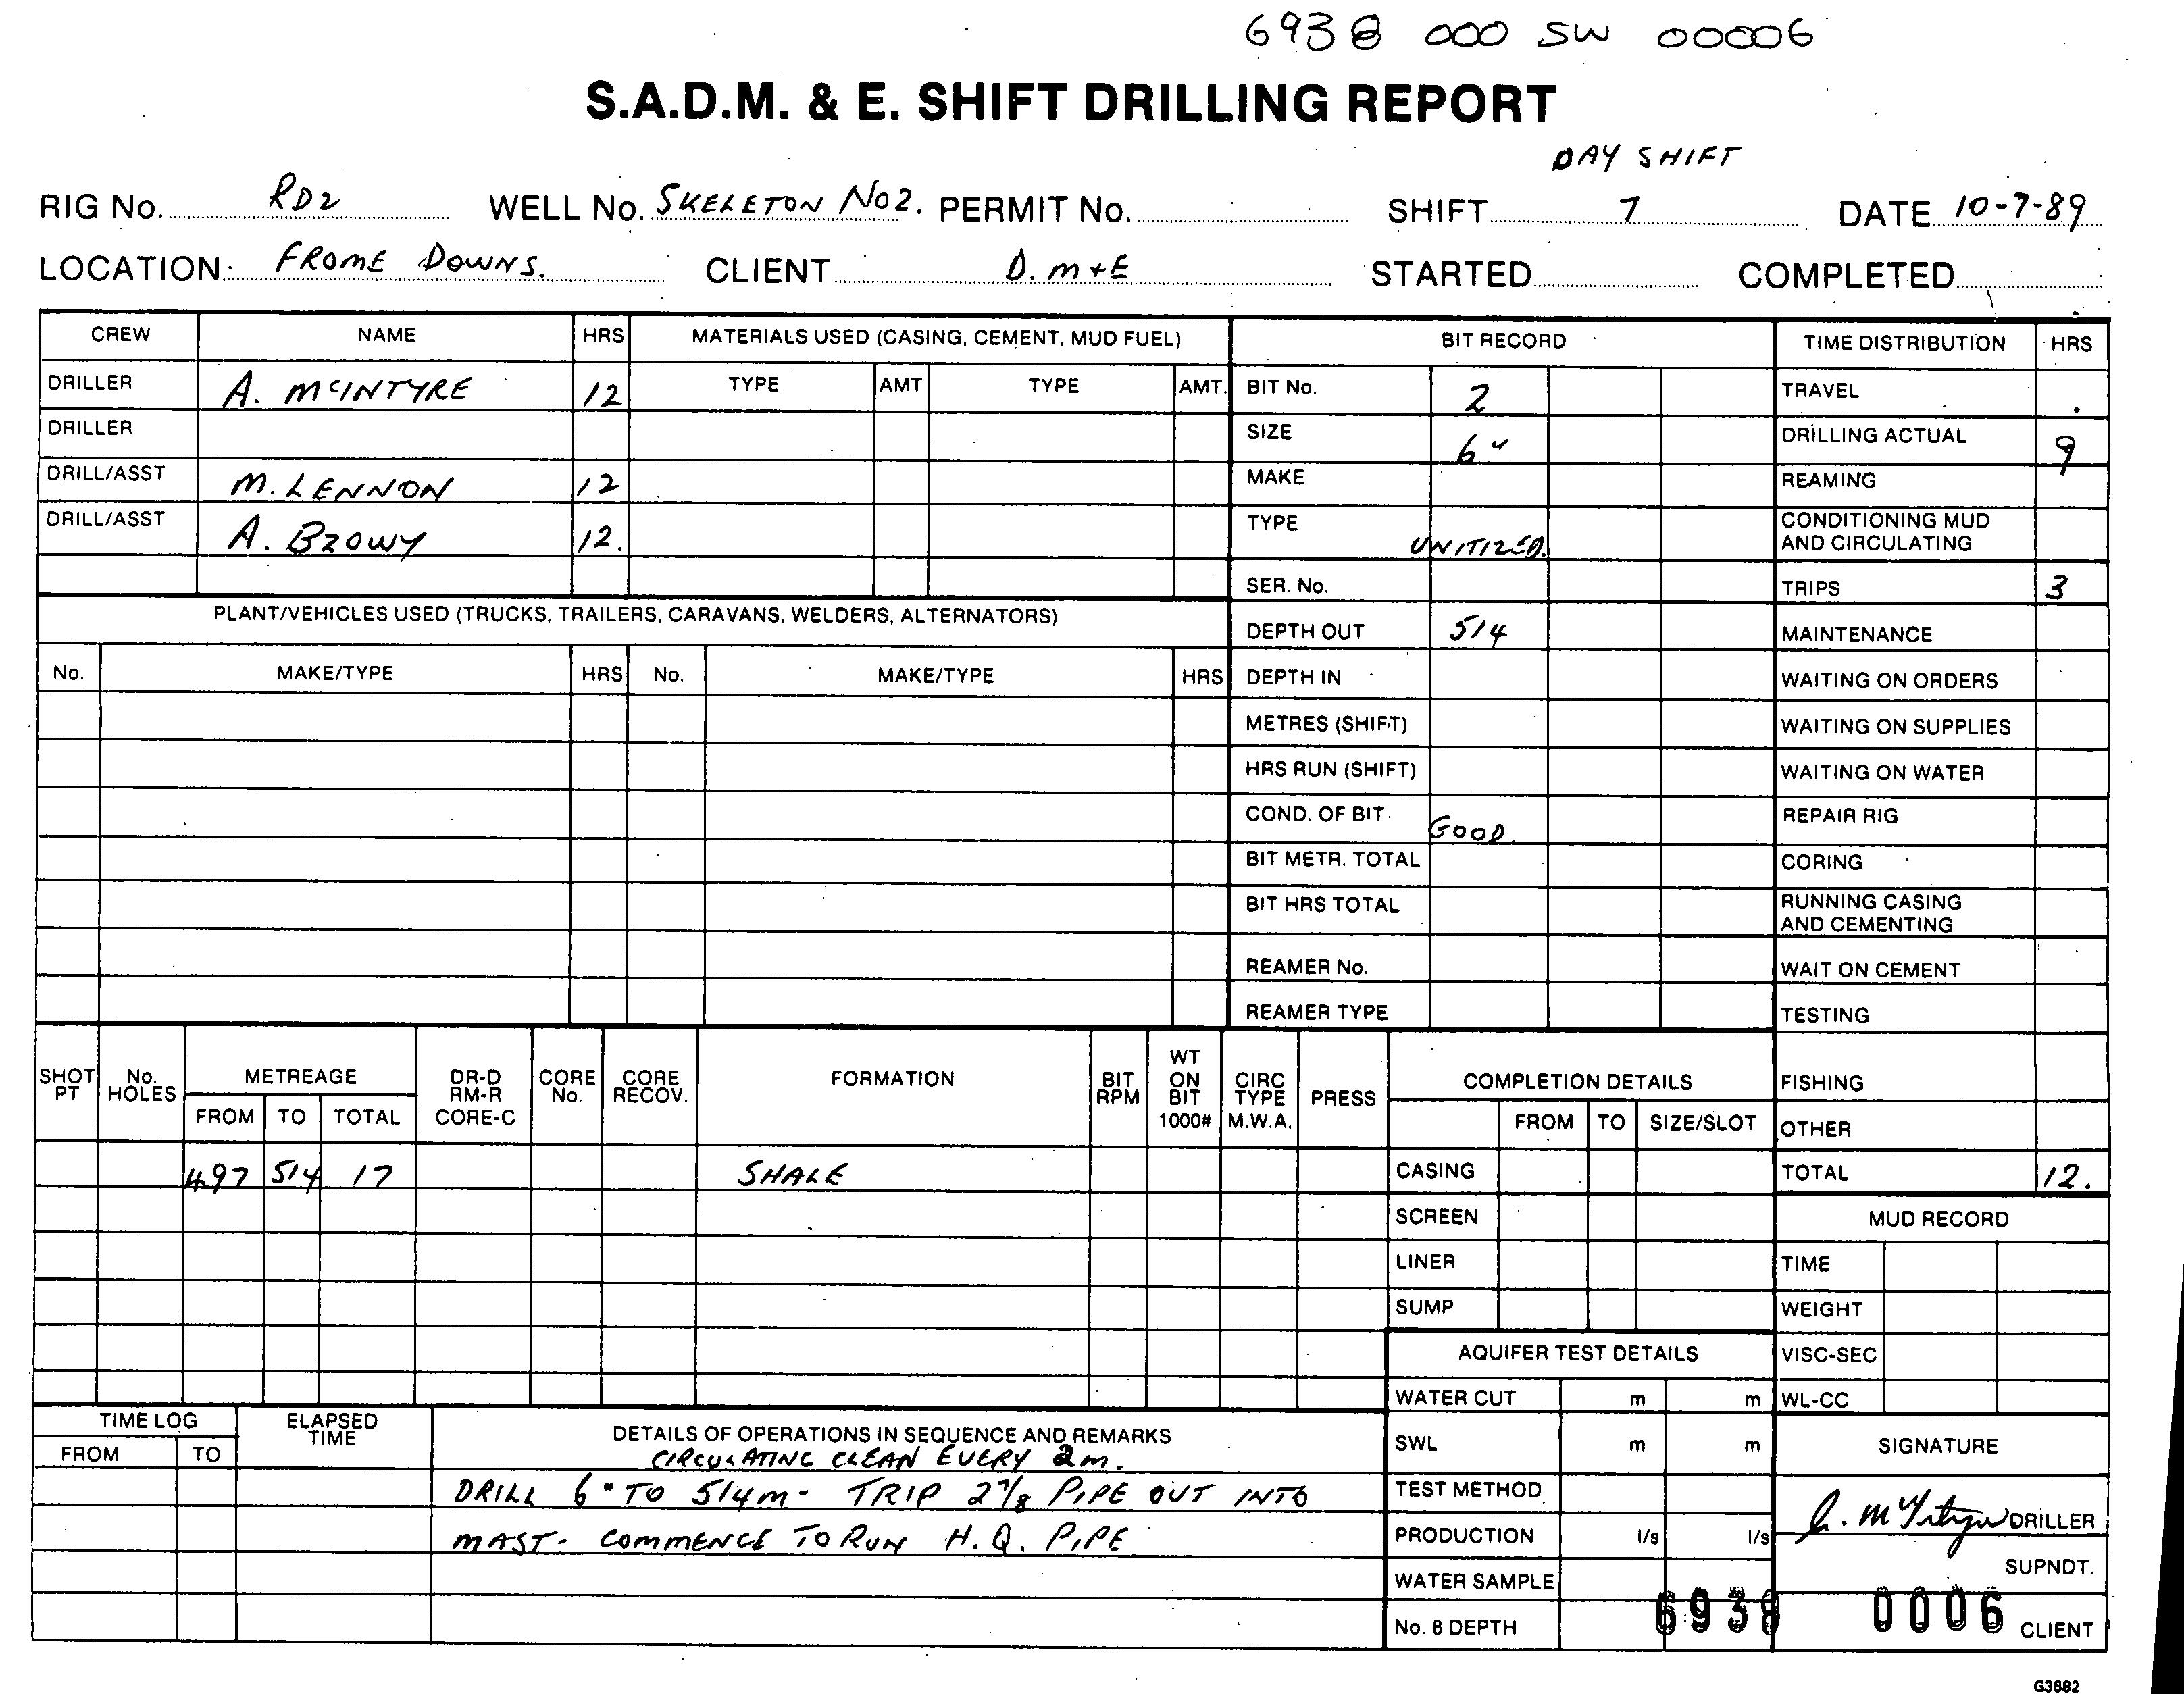 6938 000 SW 00006
S.A.D.M. & E. SHIFT DRILLING REPORT
DAY SHIFT
RIG No. RD2 WELL No. SKELETON No2. PERMIT No. SHIFT 7 DATE 10-7-89
LOCATION: FROME DOWNS. CLIENT D. M+E STARTED COMPLETED
CREW NAME HRS MATERIALS USED (CASING, CEMENT, MUD FUEL) BIT RECORD TIME DISTRIBUTION HRS
DRILLER A. MCINTYRE 12 TYPE AMT TYPE AMT. BIT No. 2 TRAVEL
DRILLER SIZE 6" DRILLING ACTUAL 9
DRILL/ASST M. LENNON 12 MAKE REAMING
DRILL/ASST A. BZOWY 12. TYPE UNITIZED. CONDITIONING MUD
AND CIRCULATING
SER. No. TRIPS 3
PLANT/VEHICLES USED (TRUCKS, TRAILERS, CARAVANS, WELDERS, ALTERNATORS)
DEPTH OUT 514 MAINTENANCE
No. MAKE/TYPE HRS No. MAKE/TYPE HRS DEPTH IN WAITING ON ORDERS
METRES (SHIFT) WAITING ON SUPPLIES
HRS RUN (SHIFT) WAITING ON WATER
COND. OF BIT. GOOD. REPAIR RIG
BIT METR. TOTAL CORING
BIT HRS TOTAL RUNNING CASING
AND CEMENTING
REAMER No. WAIT ON CEMENT
REAMER TYPE TESTING
SHOT PT No. HOLES METREAGE DR-D RM-R CORE-C CORE No. CORE RECOV. FORMATION BIT RPM WT ON BIT 1000# CIRC TYPE M.W.A. PRESS COMPLETION DETAILS FISHING
FROM TO TOTAL FROM TO SIZE/SLOT OTHER
497 514 17 SHALE CASING TOTAL 12.
SCREEN MUD RECORD
LINER TIME
SUMP WEIGHT
AQUIFER TEST DETAILS VISC-SEC
WATER CUT m m WL-CC
TIME LOG ELAPSED TIME DETAILS OF OPERATIONS IN SEQUENCE AND REMARKS
FROM TO CIRCULATING CLEAN EVERY 2m. SWL m m SIGNATURE
DRILL 6" TO 514m - TRIP 2 7/8 PIPE OUT INTO TEST METHOD
MAST - COMMENCE TO RUN H.Q. PIPE. PRODUCTION l/s l/s A. McIntyre DRILLER
WATER SAMPLE SUPNDT.
No. 8 DEPTH 6938 0006 CLIENT
G3682